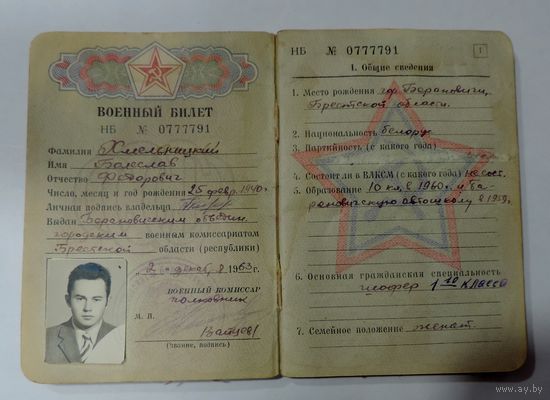 ВОЕННЫЙ БИЛЕТ
НБ № 0777791
Фамилия Хмельницкий
Имя Болеслав
Отчество Федорович
Число, месяц и год рождения 25 февр. 1940 г.
Личная подпись владельца
Выдан Барановичским объедин.
городским военным комиссариатом
Брестской области (республики)
2 декабр. 1963 г.
ВОЕННЫЙ КОМИССАР
полковник
М. П.
(звание, подпись)
НБ № 0777791
1
I. Общие сведения
1. Место рождения гор. Барановичи,
Брестской области.
2. Национальность белорус
3. Партийность (с какого года)
4. Состоит ли в ВЛКСМ (с какого года) не сост.
5. Образование 10 кл. в 1960 г. и Ба-
рановичскую автошколу в 1959 г.
6. Основная гражданская специальность
шофер 1го класса
7. Семейное положение женат.
www.ay.by